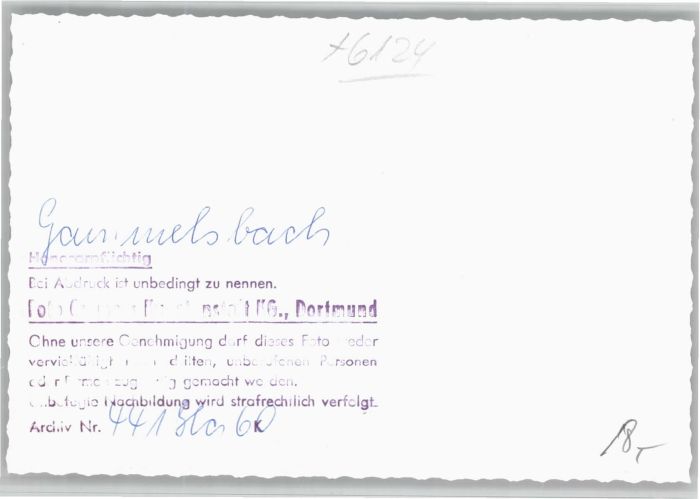 +6124
Gammelsbach
Honorarpflichtig
Bei Abdruck ist unbedingt zu nennen.
Foto KG., Dortmund
Ohne unsere Genehmigung darf dieses Foto weder
unbefugten Personen
gemacht werden.
Unbefugte Nachbildung wird strafrechtlich verfolgt.
Archiv Nr. 441 60 K
18,-